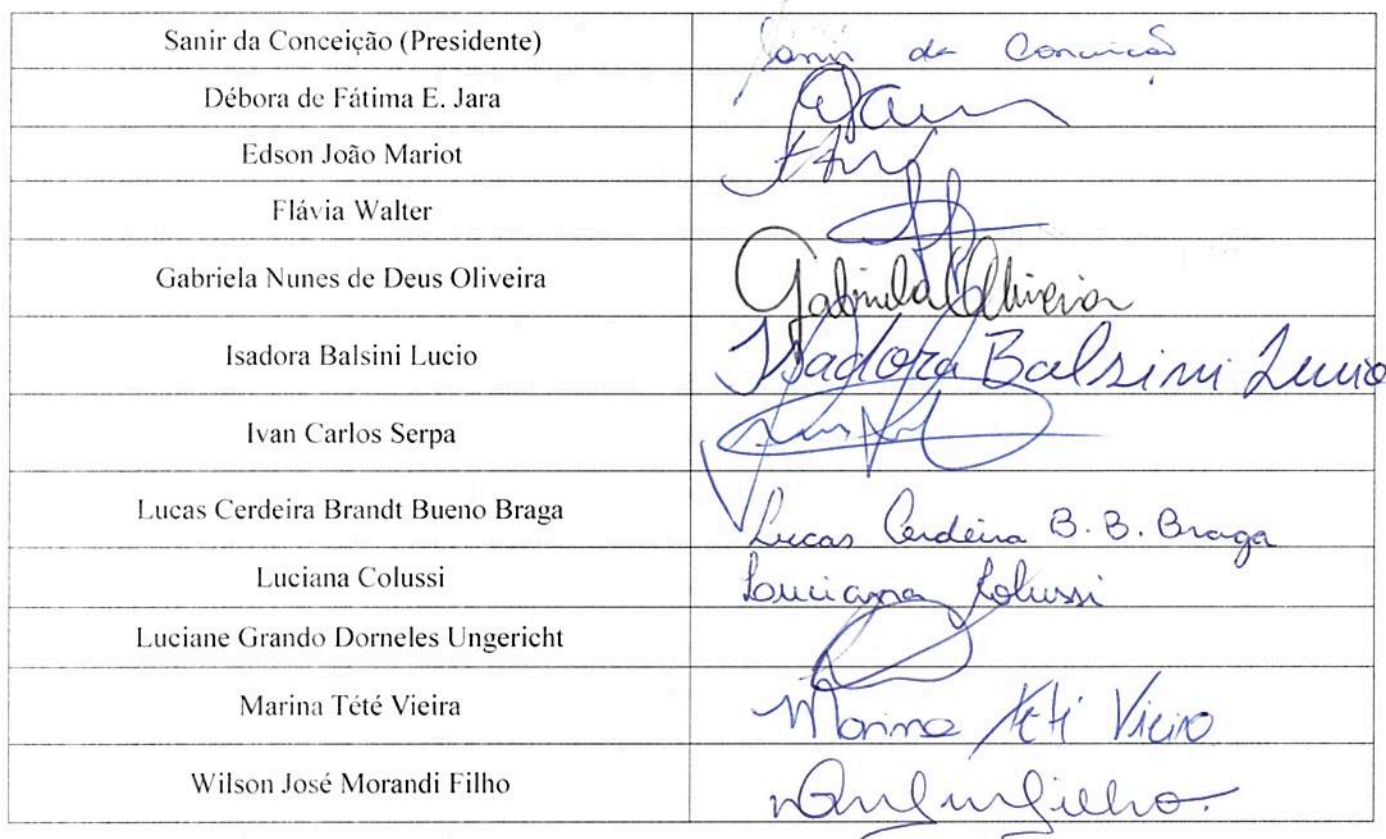 Sanir da Conceição (Presidente) Sanir da Conceição
Débora de Fátima E. Jara
Edson João Mariot
Flávia Walter
Gabriela Nunes de Deus Oliveira Gabriela Oliveira
Isadora Balsini Lucio Isadora Balsini Lucio
Ivan Carlos Serpa
Lucas Cerdeira Brandt Bueno Braga Lucas Cerdeira B. B. Braga
Luciana Colussi Luciana Colussi
Luciane Grando Dorneles Ungericht
Marina Tété Vieira Marina Tété Vieira
Wilson José Morandi Filho